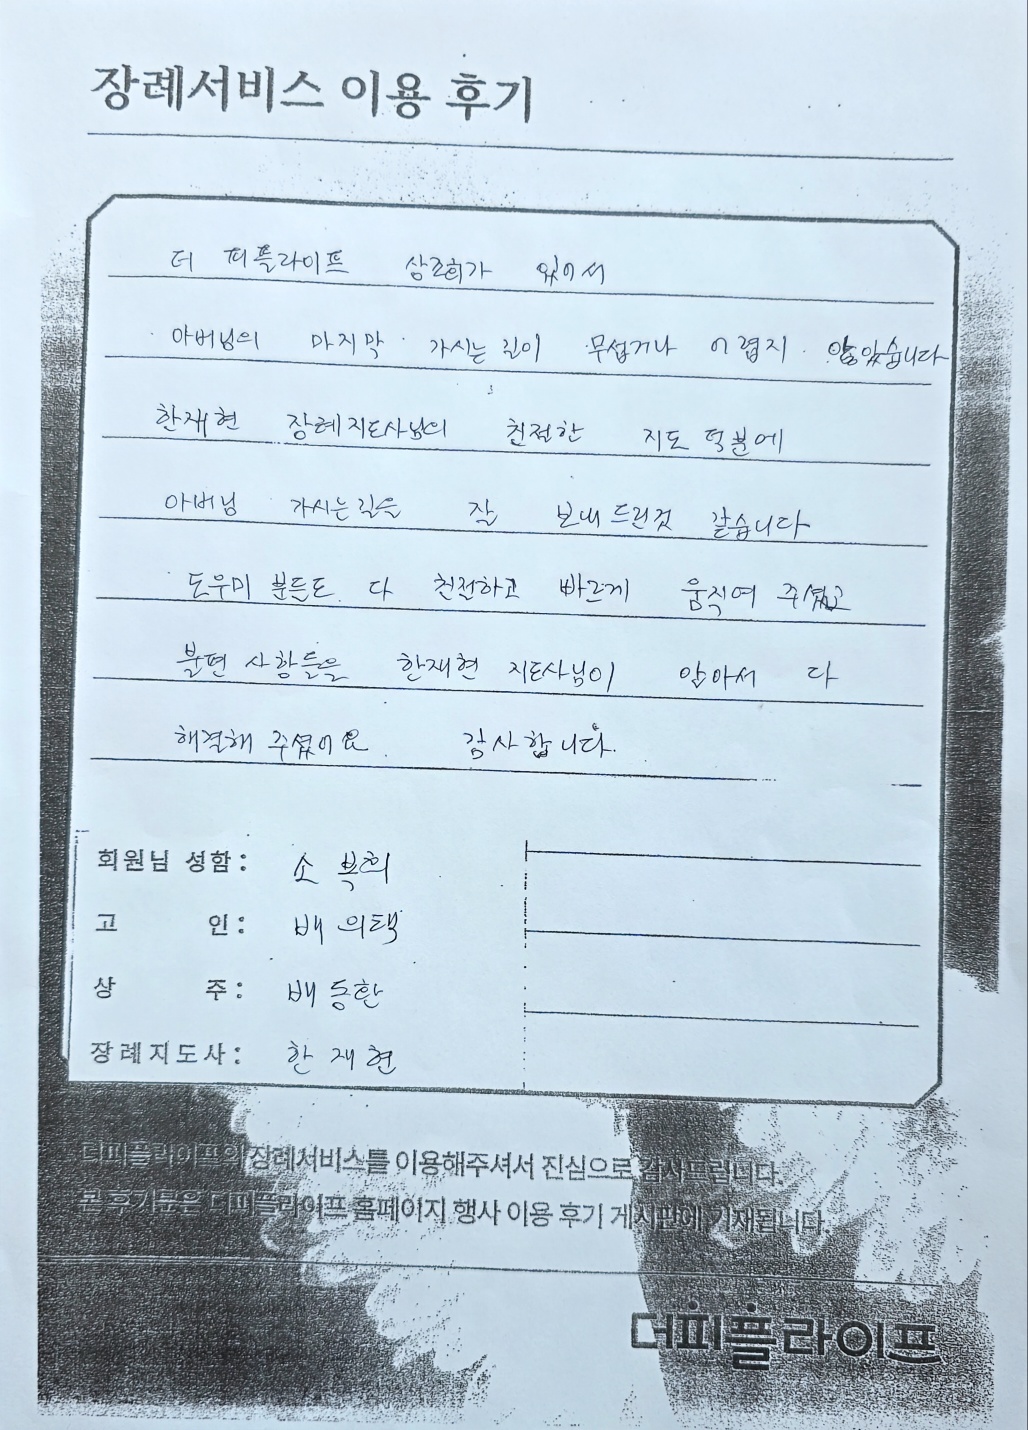 장례서비스 이용 후기
더 피플라이프 상조회가 있어서
아버님의 마지막 가시는 길이 무섭거나 어렵지 않았습니다
한재현 장례지도사님의 친절한 지도 덕분에
아버님 가시는길을 잘 보내드린것 같습니다
도우미 분들도 다 친절하고 빠르게 움직여 주셨고
불편 사항들을 한재현 지도사님이 알아서 다
해결해 주셨어요. 감사합니다.
회원님 성함: 소복희
고 인: 배의택
상 주: 배동환
장례지도사: 한재현
더피플라이프의 장례서비스를 이용해주셔서 진심으로 감사드립니다.
본 후기분은 더피플라이프 홈페이지 행사 이용 후기 게시판에 기재됩니다.
더피플라이프